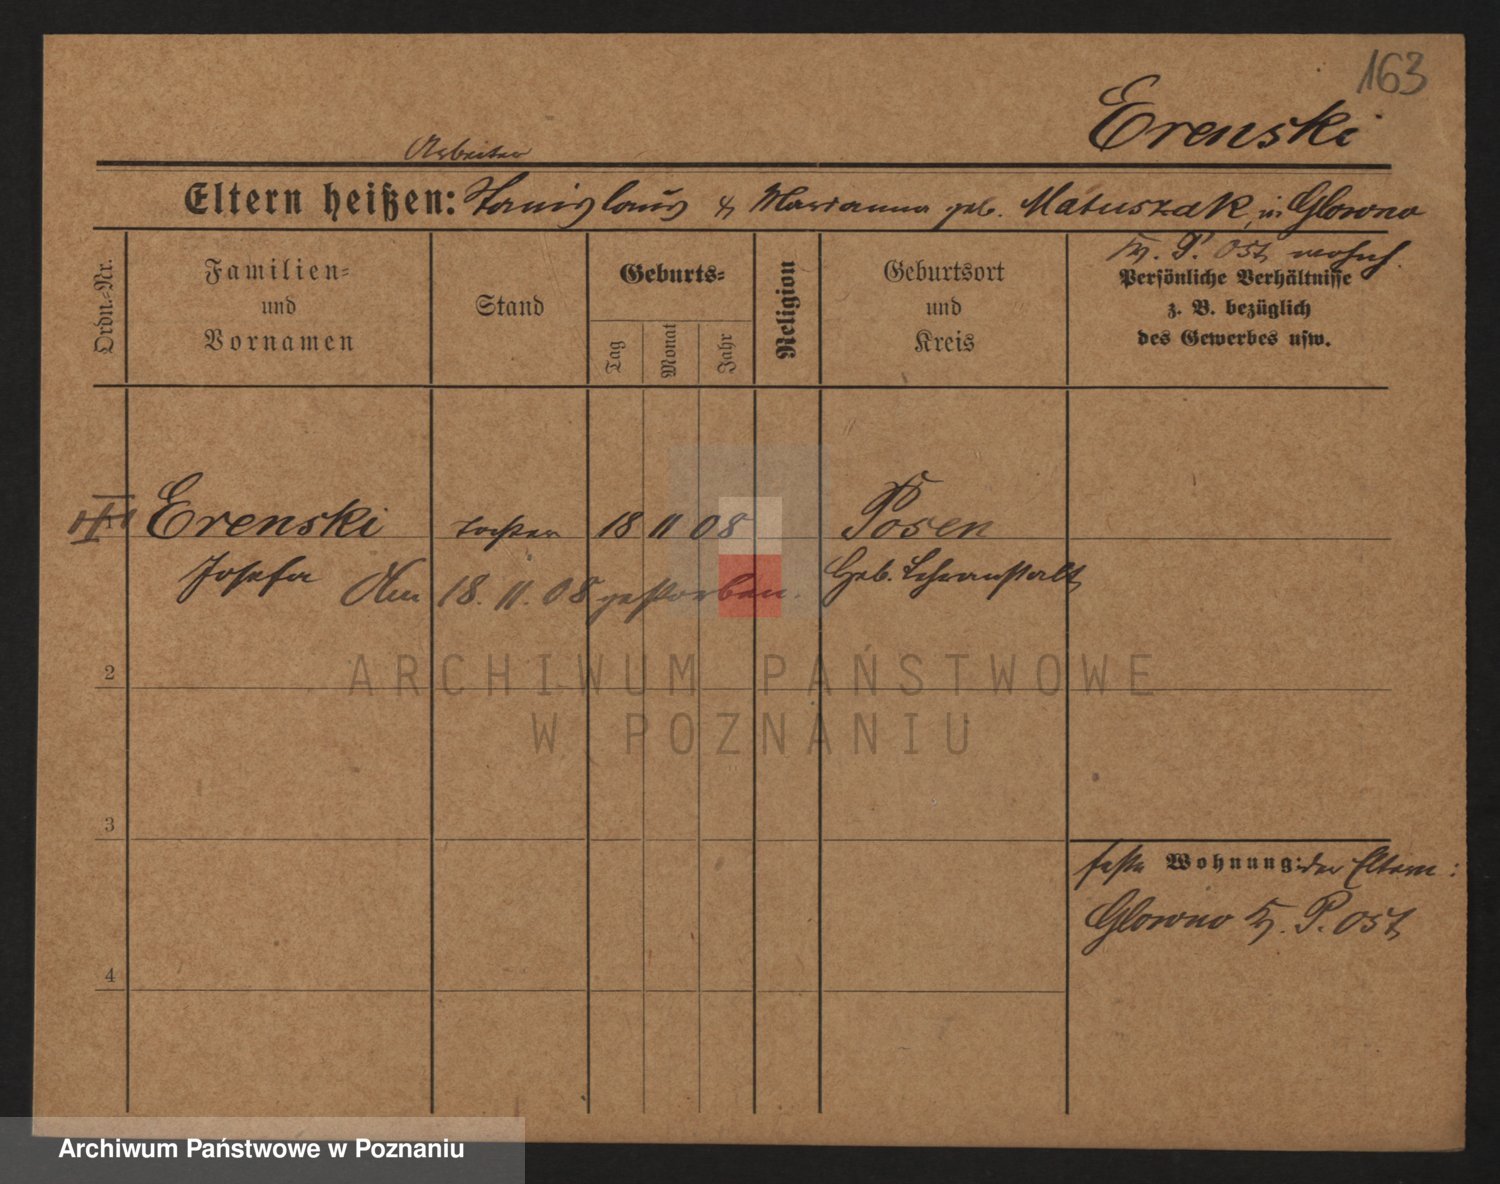 163
Erenski
Arbeiter
Eltern heißen: Stanislaus & Marianna geb. Matuszak, in Glowno
Kr. P. Ost wohnh.
Ordn.=Nr.
Familien=
und
Vornamen
Stand
Geburts=
Tag
Monat
Jahr
Religion
Geburtsort
und
Kreis
Persönliche Verhältnisse
z. B. bezüglich
des Gewerbes usw.
Erenski Tochter 18 11 08 Posen
Josefa Am 18. 11. 08 gestorben. Geb. Lehranstalt
2
3
4
feste Wohnung: der Eltern:
Glowno Kr. P. Ost
ARCHIWUM PAŃSTWOWE
W POZNANIU
Archiwum Państwowe w Poznaniu